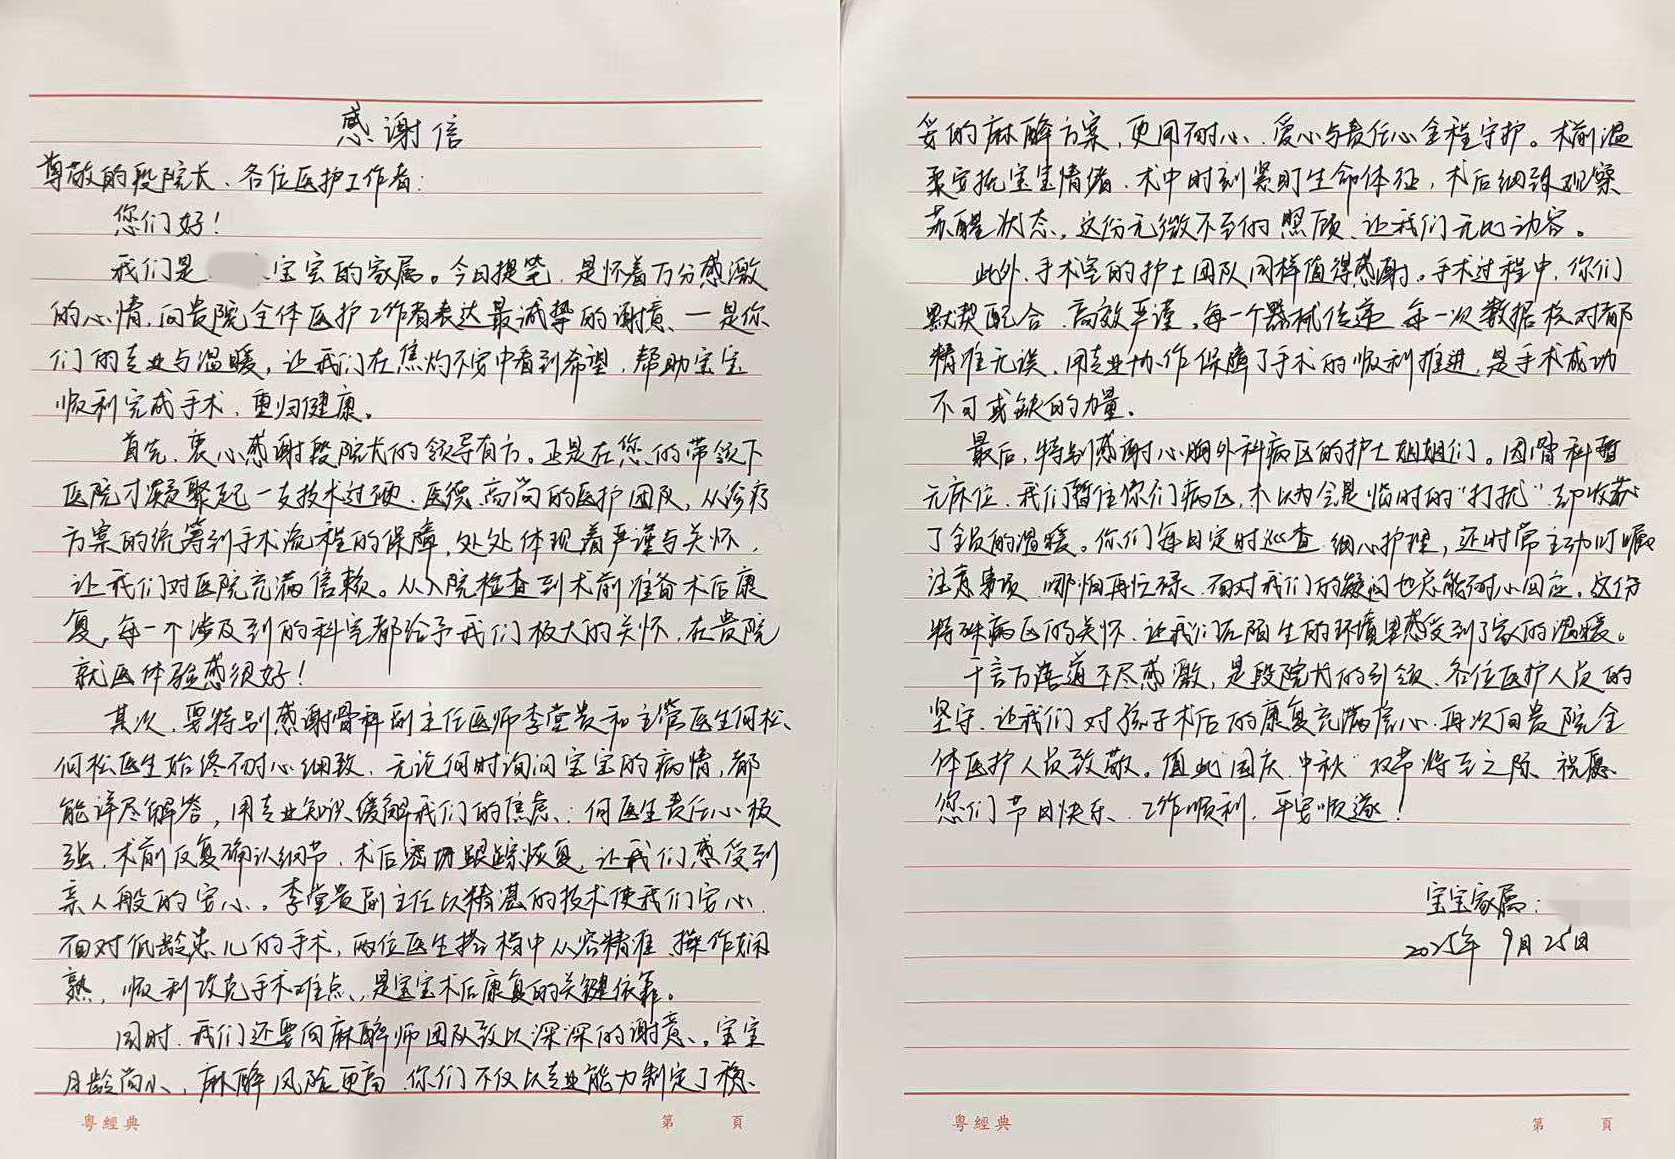 感谢信
尊敬的段院长、各位医护工作者：
您们好！
我们是 宝宝的家属。今日提笔，是怀着万分感激
的心情，向贵院全体医护工作者表达最诚挚的谢意、一是你
们的专业与温暖，让我们在焦灼不安中看到希望，帮助宝宝
顺利完成手术，重归健康。
首先，衷心感谢段院长的领导有方。正是在您的带领下
医院才凝聚起一支技术过硬、医德高尚的医护团队，从诊疗
方案的统筹到手术流程的保障，处处体现着严谨与关怀，
让我们对医院充满信赖。从入院检查到术前准备术后康
复，每一个涉及到的科室都给予我们极大的关怀，在贵院
就医体验感很好！
其次，要特别感谢骨科副主任医师李堂贵和主管医生何松、
何松医生始终耐心细致，无论何时询问宝宝的病情，都
能详尽解答，用专业知识缓解我们的焦虑；何医生责任心极
强，术前反复确认细节，术后密切跟踪恢复，让我们感受到
亲人般的安心。李堂贵副主任以精湛的技术使我们安心，
面对低龄患儿的手术，两位医生搭档中从容精准、操作娴
熟，顺利攻克手术难点，是宝宝术后康复的关键依靠。
同时，我们还要向麻醉师团队致以深深的谢意、。宝宝
月龄尚小，麻醉风险更高，你们不仅以专业能力制定了稳
粤經典 第 頁
妥的麻醉方案，更用耐心、爱心与责任心全程守护。术前温
柔安抚宝宝情绪，术中时刻紧盯生命体征，术后细致观察
苏醒状态，这份无微不至的照顾，让我们无比动容。
此外，手术室的护士团队同样值得感谢。手术过程中，你们
默契配合、高效严谨，每一个器械传递、每一次数据核对都
精准无误，用专业协作保障了手术的顺利推进，是手术成功
不可或缺的力量。
最后，特别感谢心胸外科病区的护士姐姐们。因骨科暂
无床位，我们暂住你们病区，本以为会是临时的“打扰”却收获
了全员的温暖。你们每日定时巡查、细心护理，还时常主动叮嘱
注意事项，哪怕再忙碌，面对我们的疑问也总能耐心回应，这份
特殊病区的关怀，让我们在陌生的环境里感受到了家的温暖。
千言万语道不尽感激，是段院长的引领、各位医护人员的
坚守，让我们对孩子术后的康复充满信心，再次向贵院全
体医护人员致敬。值此国庆、中秋 双节将至之际、祝愿
您们节日快乐、工作顺利，平安顺遂！
宝宝家属：
2025年9月25日
粤經典 第 頁